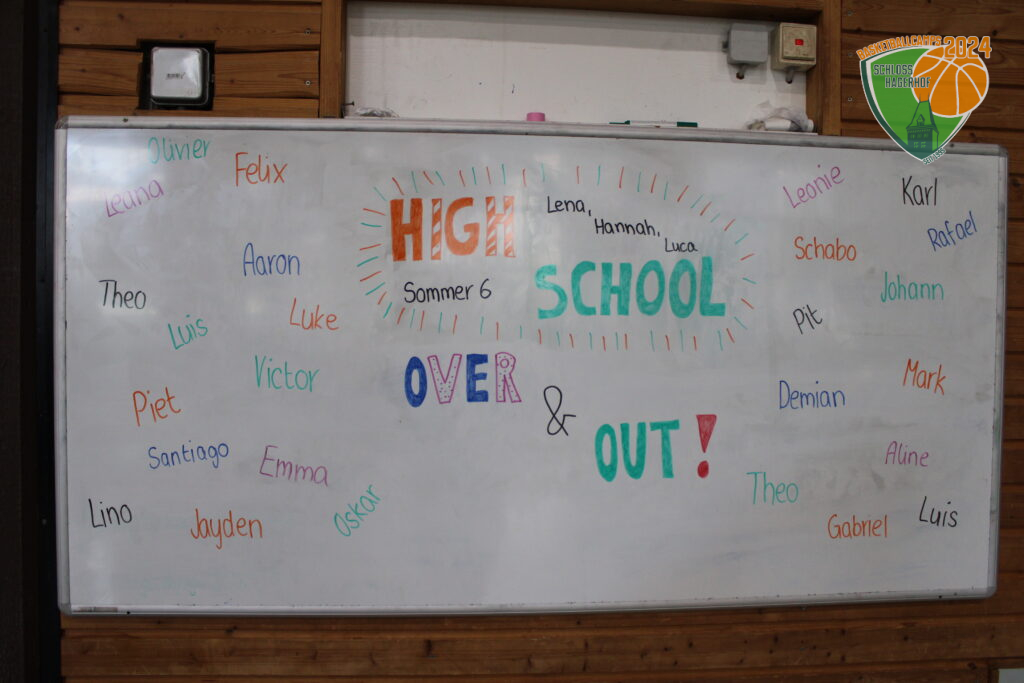 BASKETBALLCAMPS 2024
SCHLOSS
HAGERHOF
Olivier
Felix
Leana
Aaron
Theo
Luis
Luke
Victor
Piet
Santiago
Emma
Lino
Jayden
Oskar
HIGH
Lena,
Hannah,
Luca
Sommer 6
SCHOOL
OVER
&
OUT!
Leonie
Karl
Rafael
Schabo
Johann
Pit
Mark
Demian
Aline
Theo
Gabriel
Luis